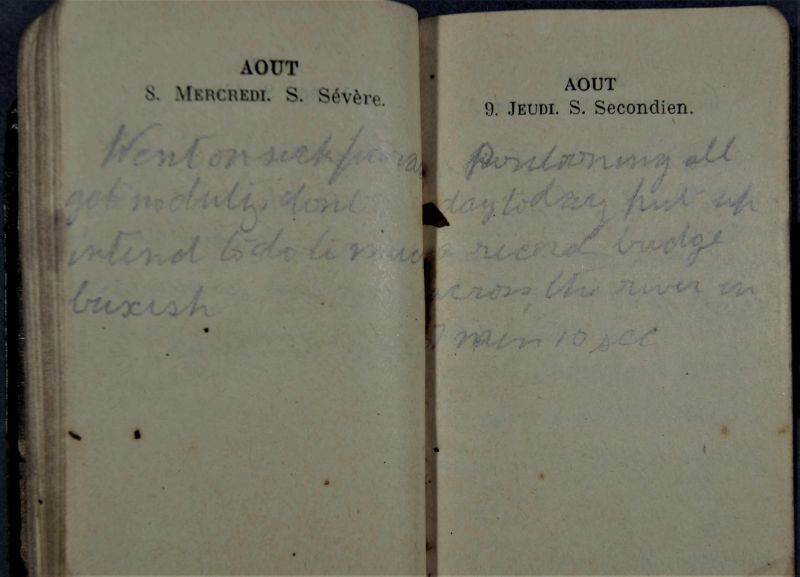 AOUT
8. MERCREDI. S. Sévère.
Went on sick
got no duty, dont
intend to do to much
buxish
AOUT
9. JEUDI. S. Secondien.
Pontooning all
day today put up
a record bridge
across the river in
min 10 sec